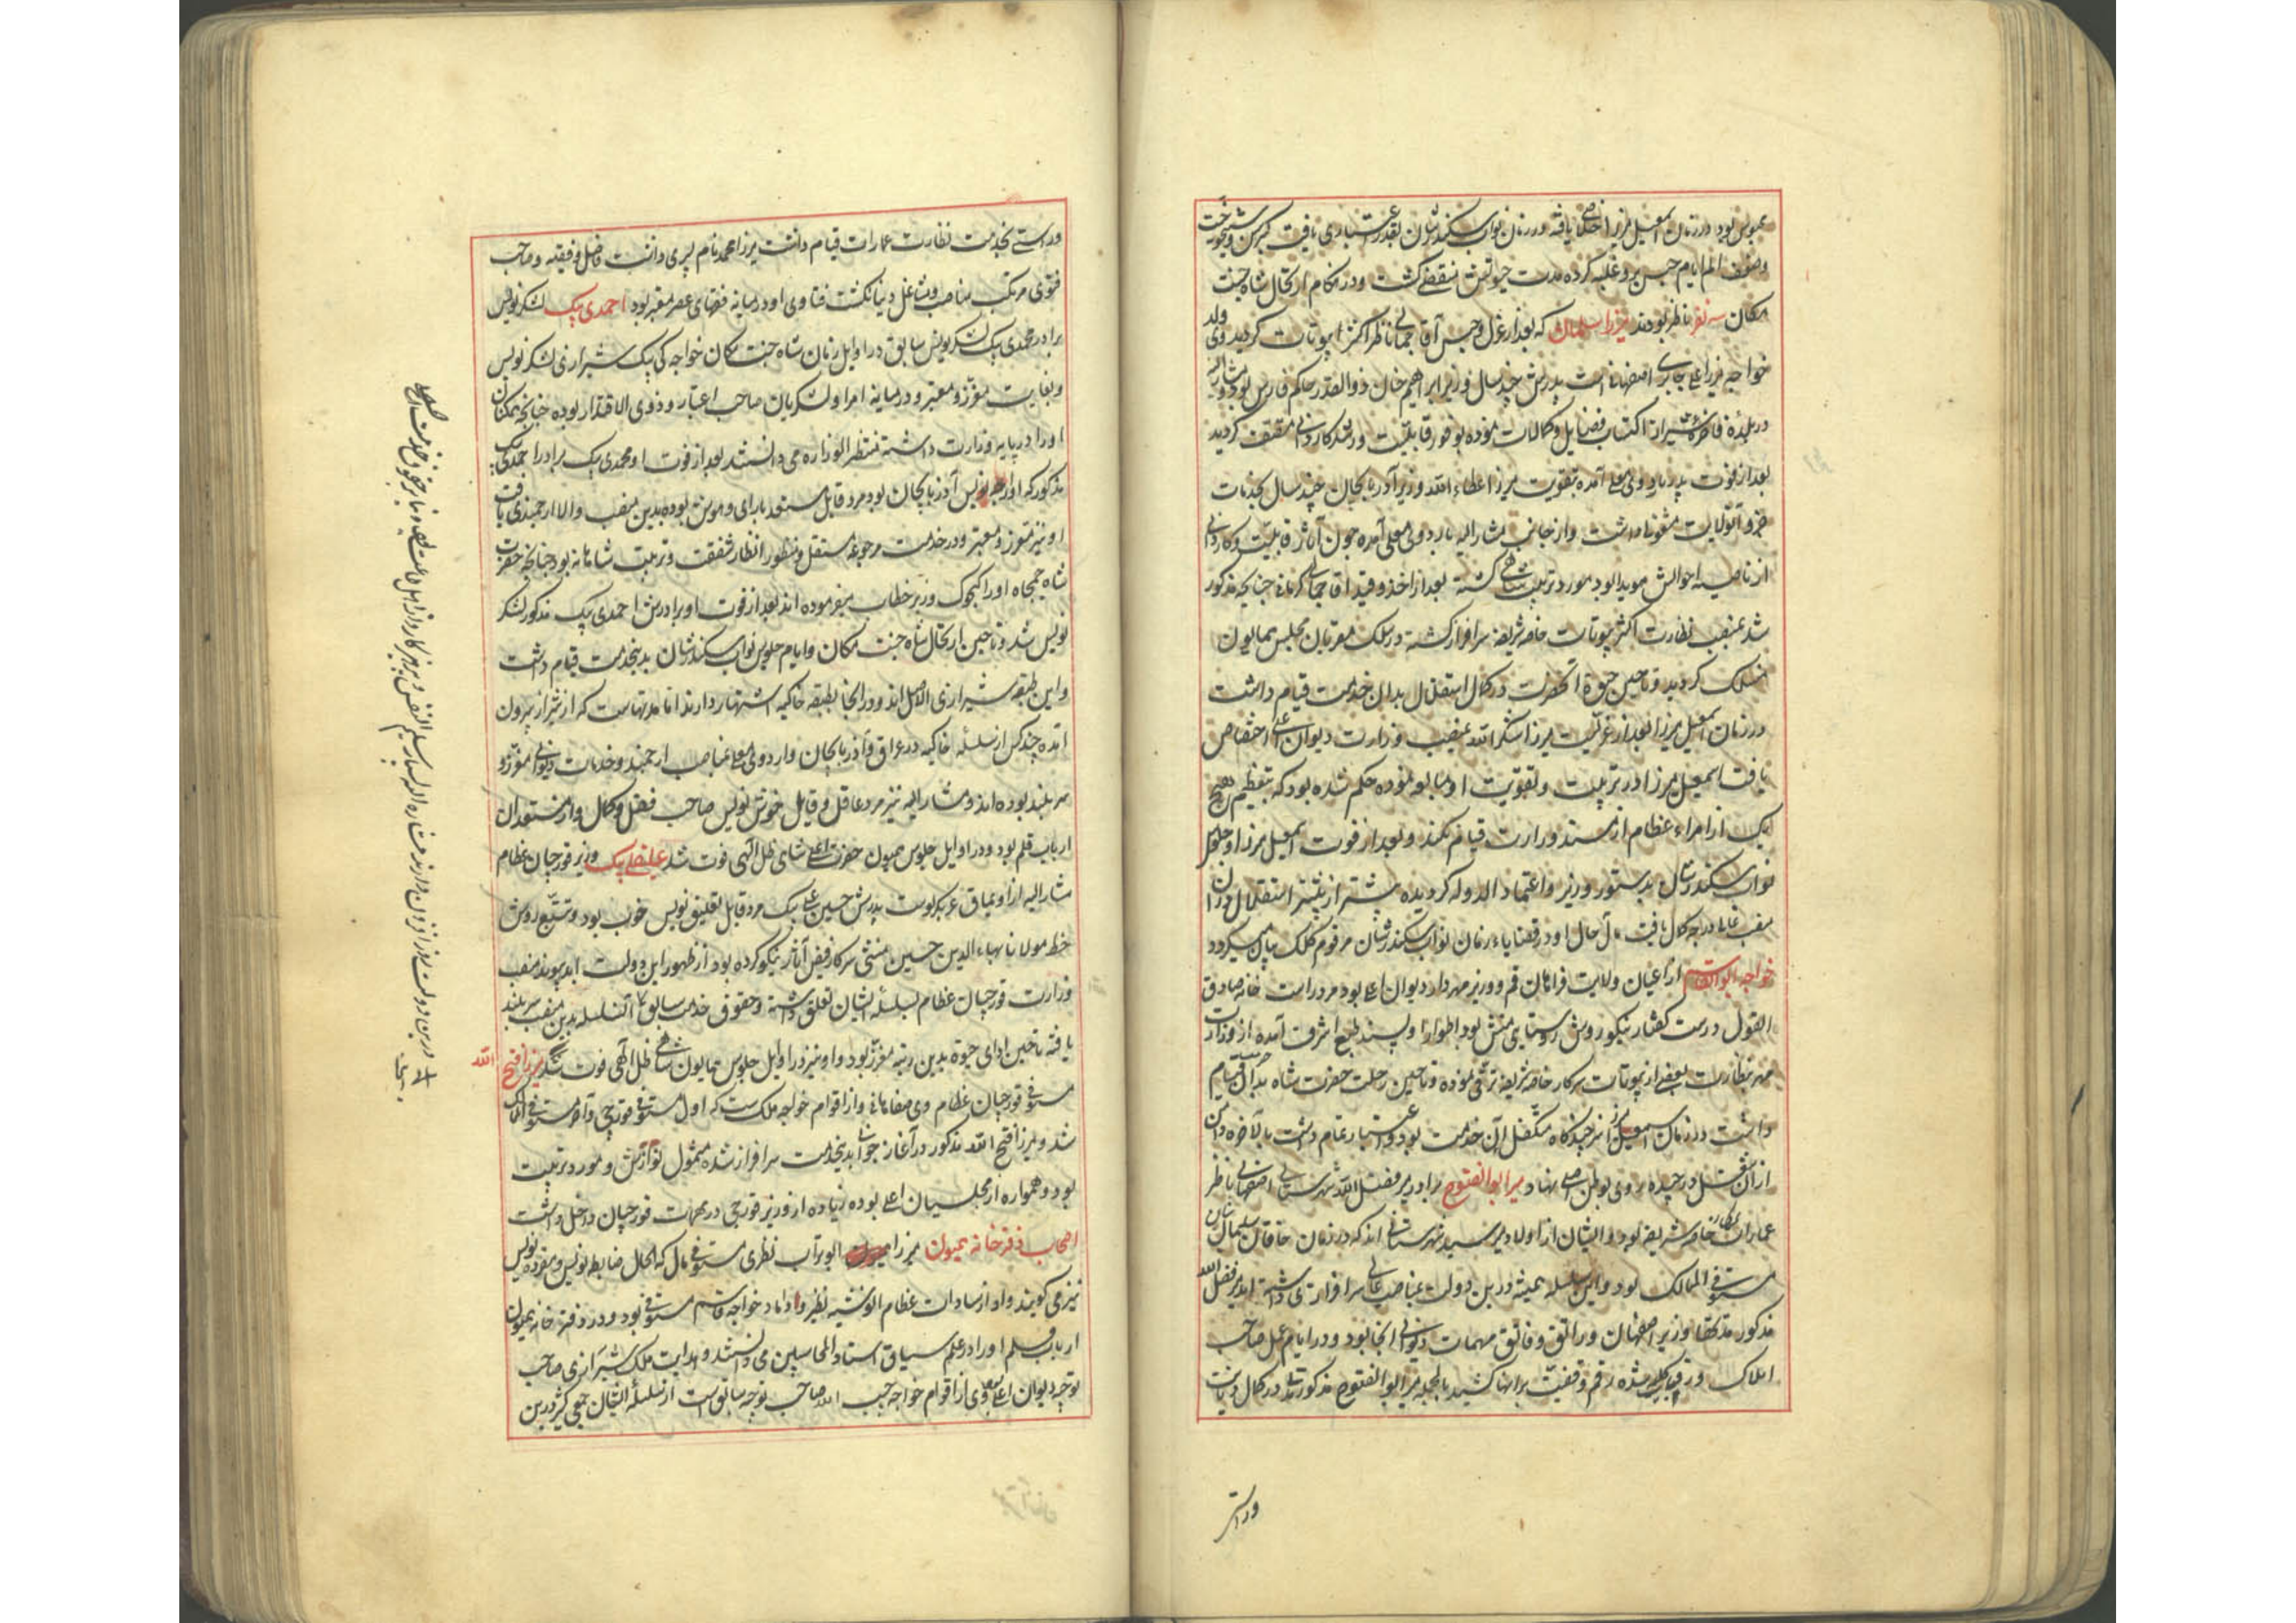 محبوس بود در زمان اسمعیل میرزا خلاصی یافته و در زمان نواب سکندرشان بقدر اعتباری یافت کبر سن و شیخوخیت
و ضعف الم ایام حبس برو غلبه کرده مدت حیوتش منقضی گشت و در هنگام ارتحال شاه جنت
مکان سه نفر ناظر بودند میرزا سلمان که بعد از عزل و حبس آقا جمالی ناظر اکثر بیوتات گردید وی ولد
خواجه میرزا علی جابری اصفهانی است پدرش چند سال وزیر ابراهیم خان ذوالقدر حاکم فارس بود و مشار الیه
در بلده فاخره شیراز اکتساب فضایل و کمالات نموده بوفور قابلیت و رشد کاردانی متصف گردید
بعد از فوت پدر باردوی معلی آمده بتقویت میرزا عطاء الله وزیر آذربایجان چند سال بخدمات
جزو آنولایت مشغول داشت و از جانب مشار الیه باردوی معلی آمده چون آثار قابلیت و کاردانی
از ناصیه احوالش هویدا بود مورد تربیت شاهی گشته بعد از اخذ و قید آقا جمالی کرمانی چنانچه مذکور
شد بمنصب نظارت اکثر بیوتات خاصه شریفه سرافراز گشته در سلک مقربان مجلس همایون
منسلک گردید و تا حین حیوة آنحضرت در کمال استقلال بدان خدمت قیام داشت
در زمان اسمعیل میرزا بعد از عزلت میرزا شکر الله بمنصب وزارت دیوان اعلی اختصاص
یافت اسمعیل میرزا در تربیت و تقویت او مبالغه نموده حکم شده بود که بتعظیم هیچ
یک از امراء عظام از مسند وزارت قیام نکند و بعد از فوت اسمعیل میرزا و جلوس
نواب سکندرشان بدستور وزیر و اعتماد الدوله گردیده بیشتر از پیشتر استقلال در آن
منصب عالی درجه کمال یافت مآل حال او در قضایاء زمان نواب سکندرشان مرقوم کلک بیان میگردد
خواجه ابوالقاسم از اعیان ولایت فراهان قم و وزیر مهردار دیوان اعلی بود مرد راست خانه صادق
القول درست گفتار نیکو روش روستایی منش بود اطوار او پسند طبع اشرف آمده از وزارت
مهر بنظارت بعضی از بیوتات سرکار خاصه شریفه ترقی نموده و تا حین رحلت حضرت شاه جنت مکان بدان قیام
داشت در زمان اسمعیل میرزا نیز چندگاه متکفل آن خدمت بود و اعتبار تمام داشت بالآخره دامن
از آن شغل درچیده روی بوطن اصلی نهاد و میر ابوالفتوح برادر میر فضل الله شهرستانی اصفهانی ناظر
عمارات سرکار خاصه شریفه بود و ایشان از اولاد میر سید شهرستانی اند که در زمان خاقان سلیمان شان
مستوفی الممالک بود و این سلسله همیشه درین دولت بمناصب عالی سرافرازی داشته اند میر فضل الله
مذکور مدتها وزیر اصفهان و راتق و فاتق مهمات دیوانی آنجا بود و در ایام عمل صاحب
املاک و رقبات کلی شده رقم وقفیت برانها کشید بالجمله میر ابوالفتوح مذکور نیز در کمال دیانت
وراستی
وراستی بخدمت نظارت عمارات قیام داشت میرزا محمد نام پسری داشت فاضل و فقیه و صاحب
فتوی مرتکب مناصب و مشاغل دنیا نگشت فتاوی او در میانه فقهای عصر معتبر بود احمدی بیک لشکر نویس
برادر محمدی بیک لشکر نویس سابق در اوایل زمان شاه جنت مکان خواجه کی بیک شیرازی لشکر نویس
و بغایت معزز و معتبر و در میانه امرا و لشکریان صاحب اعتبار و ذوی الاقتدار بوده چنانچه همکنان
او را در پایه وزارت داشته منتظر الوزاره می دانستند بعد از فوت او محمدی بیک برادر احمدی بیک
مذکور که آوارجه نویس آذربایجان بود مرد قابل مستعد با رای و هوش بوده بدین منصب والا ارجمندی یافت
او نیز معزز و معتبر و در خدمت مرجوعه مستقل و منظور انظار شفقت و تربیت شاهانه بود چنانچه حضرت
شاه جمجاه او را کجوک وزیر خطاب میفرموده اند بعد از فوت او برادرش احمدی بیک مذکور لشکر
نویس شد و تا حین ارتحال شاه جنت مکان و ایام جلوس نواب سکندرشان بدینخدمت قیام داشت
و این طبقه شیرازی الاصل اند و در آنجا بطبقه خاکیه اشتهار دارند اما مدتهاست که از شیراز بیرون
آمده چند کس از سلسله خاکیه در عراق و آذربایجان و اردوی معلی بمناصب ارجمند و خدمات دیوانی معزز و
سربلند بوده اند و مشار الیه نیز مرد عاقل و قابل خوش نویس صاحب فضل و کمال و از مستعدان
ارباب قلم بود و در اوایل جلوس همیون حضرت اعلی شاهی ظل الهی فوت شد علینقلی بیک وزیر قورچیان عظام
مشار الیه از اویماق عربکیرلوست پدرش حسین علی بیک مرد قابل تعلیق نویس خوب بود و تتبع روش
خط مولانا بهاء الدین حسین منشی سرکار فیض آثار نیکو کرده بود از ظهور این دولت ابد پیوند منصب
وزارت قورچیان عظام بسلسله ایشان تعلق داشته و حقوق خدمت سابق آن سلسله بدین منصب سربلند
یافته تا حین ادای حیوة بدین رتبه معزز بود و او نیز در اوایل جلوس همایون شاهی ظل الهی فوت شد میرزا فتح الله
مستوفی قورچیان عظام وی صفاهانی و از اقوام خواجه ملک است که اول مستوفی قورچی و آخر مستوفی الممالک
شد و میرزا فتح الله مذکور در آغاز جوانی بدینخدمت سرافراز شده مشمول نوازش و مورد تربیت
بود و همواره از مجلسیان اعلی بوده زیاده از وزیر قورچی در مهمات قورچیان دخل داشت
اصحاب دفترخانه همیون میرزا ابوتراب نظری مستوفی مال که الحال ضابطه نویس و مفرده نویس
نیز می گویند و او از سادات عظام نظنز و داماد خواجه قاسم مستوفی بود و در دفترخانه همیون
ارباب قلم او را در علم سیاق استاد المحاسبین می دانستند و هدایت ملک شیرازی صاحب
توجیه دیوان اعلی بود وی از اقوام خواجه حبیب الله صاحب توجیه سابق است از سلسله ایشان جمعی کثیر درین